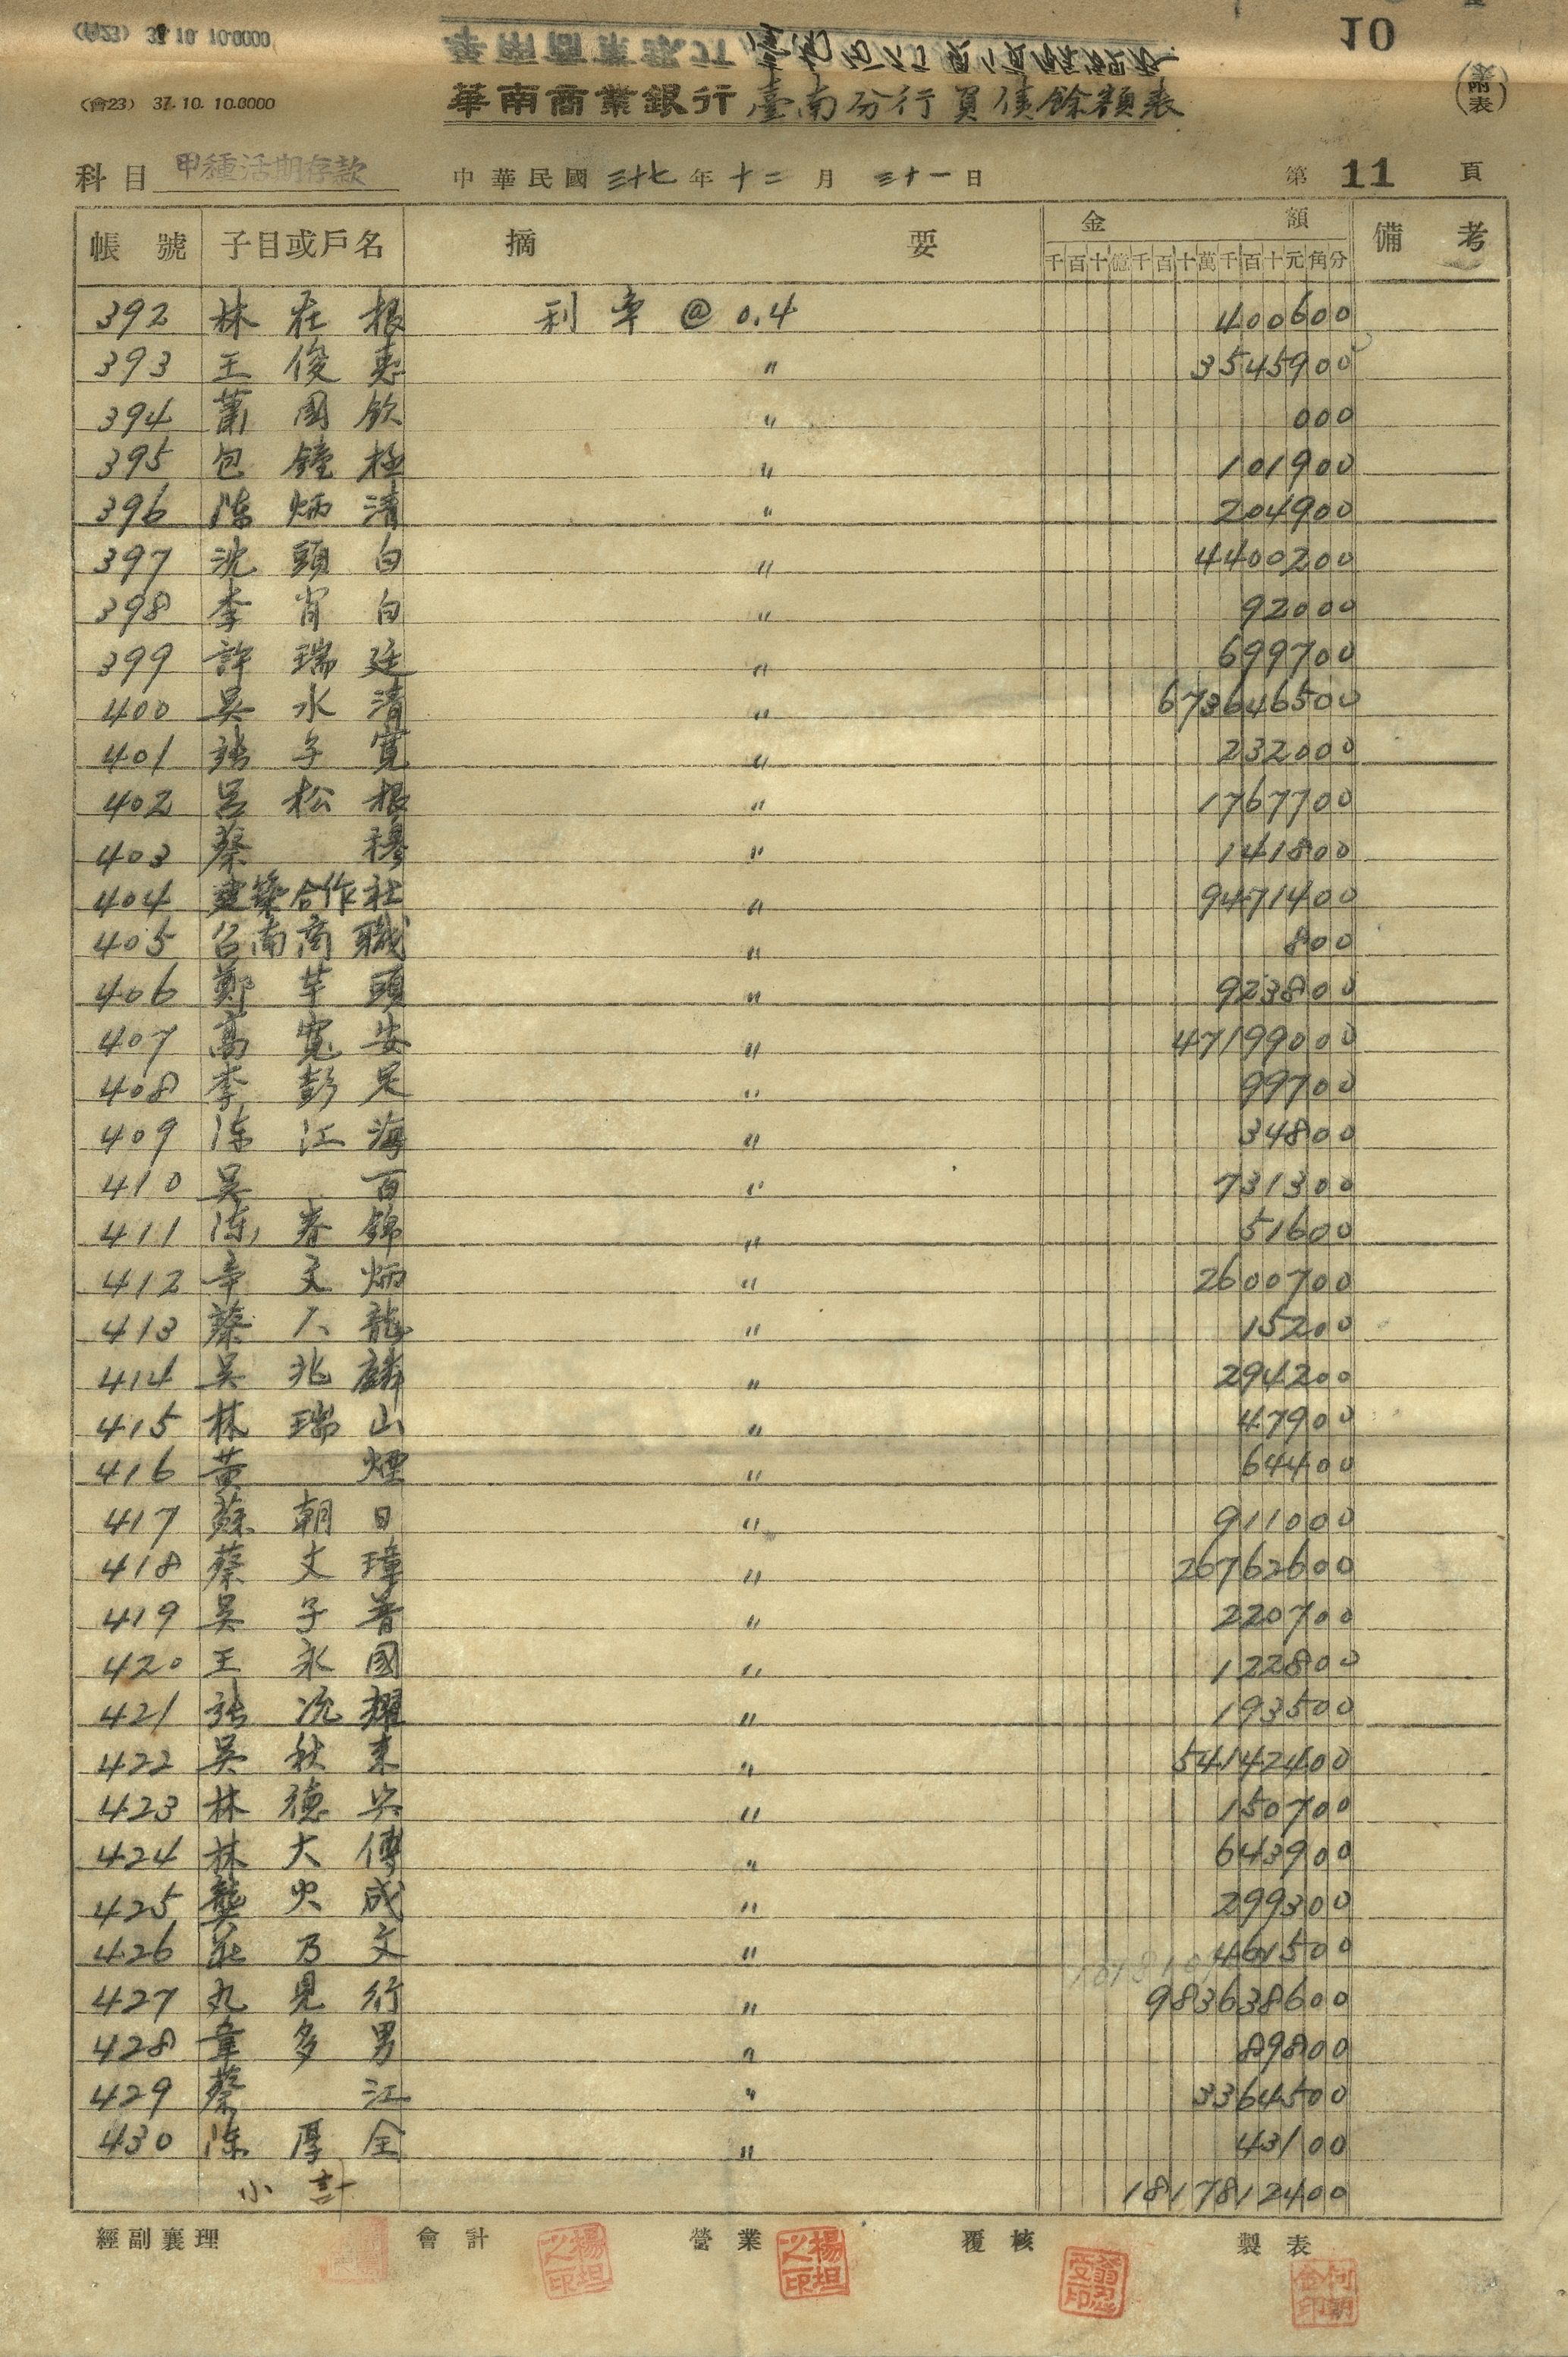 (會23) 37. 10. 10.0000
10
(會23) 37. 10. 10.0000 華南商業銀行 臺南分行資債餘額表 (附表)
科目 甲種活期存款 中華民國三十七年十二月三十一日 第 11 頁
帳號 子目或戶名 摘要 金額 備考
千百十億千百十萬千百十元角分
392 林在根 利率 @ 0.4 400600
393 王俊惠 〃 3545900
394 蕭國欽 〃 000
395 包鐘極 〃 101900
396 陈炳清 〃 204900
397 沈頭白 〃 4400200
398 李肖白 〃 92000
399 許瑞廷 〃 699700
400 吳水清 〃 673646500
401 張子寬 〃 232000
402 呂松根 〃 1767700
403 蔡穆 〃 141800
404 建築合作社 〃 9471400
405 台南商職 〃 800
406 鄭芋頭 〃 923800
407 高寬安 〃 47199000
408 李彭足 〃 99700
409 陈江海 〃 34800
410 吳百 〃 731300
411 陈春錦 〃 51600
412 辛文炳 〃 2600700
413 蔡人龍 〃 15200
414 吳兆麟 〃 294200
415 林瑞山 〃 47900
416 黃煙 〃 64400
417 蘇朝日 〃 911000
418 蔡文璋 〃 26762600
419 吳子普 〃 220700
420 王永國 〃 122800
421 張沈耀 〃 193500
422 吳秋東 〃 54142400
423 林德兴 〃 150700
424 林大傳 〃 643900
425 龔火成 〃 299300
426 莊乃文 〃 461500
427 丸見行 〃 983638600
428 韋多男 〃 89800
429 蔡江 〃 3364500
430 陈厚全 〃 43100
小計 1817812400
經副襄理 會計 營業 覆核 製表
楊坦之印 楊坦之印 翁忍受印 何朝金印